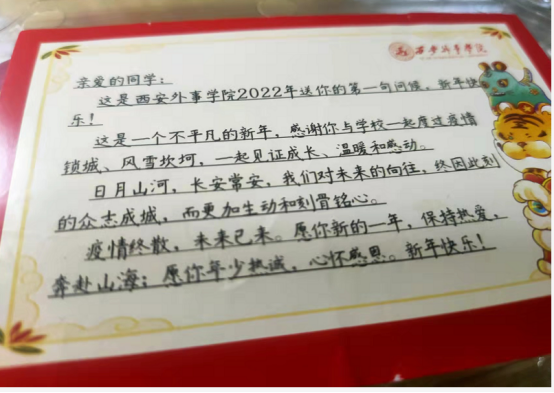 西安外事学院
亲爱的同学：
这是西安外事学院2022年送你的第一句问候，新年快
乐！
这是一个不平凡的新年，感谢你与学校一起度过疫情
锁城、风雪坎坷，一起见证成长、温暖和感动。
日月山河，长安常安，我们对未来的向往，终因此刻
的众志成城，而更加生动和刻骨铭心。
疫情终散，未来已来。愿你新的一年，保持热爱，
奔赴山海；愿你年少热诚，心怀感恩。新年快乐！